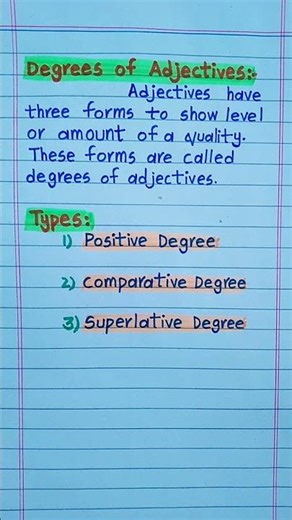 Degrees of Adjectives:-
Adjectives have
three forms to show level
or amount of a quality.
These forms are called
degrees of adjectives.
Types:
1) Positive Degree
2) Comparative Degree
3) Superlative Degree